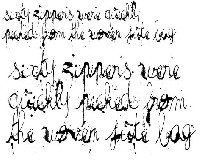 sixty zippers were quickly
picked from the woven jute bag
sixty zippers were
quickly picked from
the woven jute bag